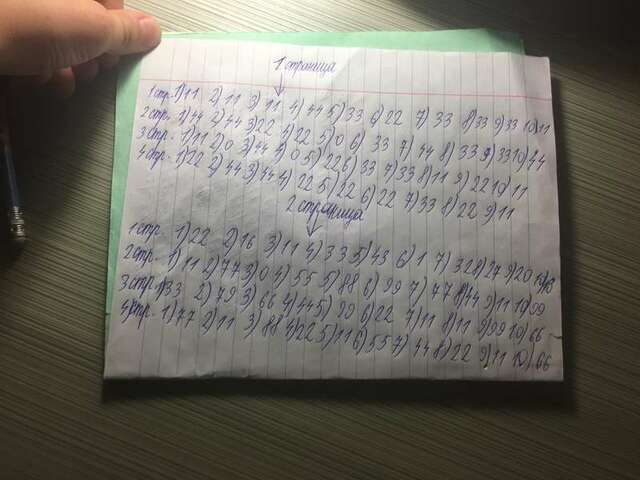 1 страница
1 стр. 1)11 2)11 3)11 4)44 5)33 6)22 7)33 8)33 9)33 10)11
2 стр. 1)44 2)44 3)22 4)22 5)0 6)33 7)44 8)33 9)33 10)44
3 стр. 1)11 2)0 3)44 4)0 5)22 6)33 7)33 8)11 9)22 10)11
4 стр. 1)22 2)44 3)44 4)22 5)22 6)22 7)33 8)22 9)11
2 страница
1 стр. 1)22 2)16 3)11 4)33 5)43 6)1 7)32 8)27 9)20
2 стр. 1)11 2)77 3)0 4)55 5)88 6)99 7)77 8)44 9)11 10)99
3 стр. 1)33 2)79 3)66 4)44 5)99 6)22 7)11 8)11 9)99 10)66
4 стр. 1)77 2)11 3)88 4)22 5)11 6)55 7)44 8)22 9)11 10)66